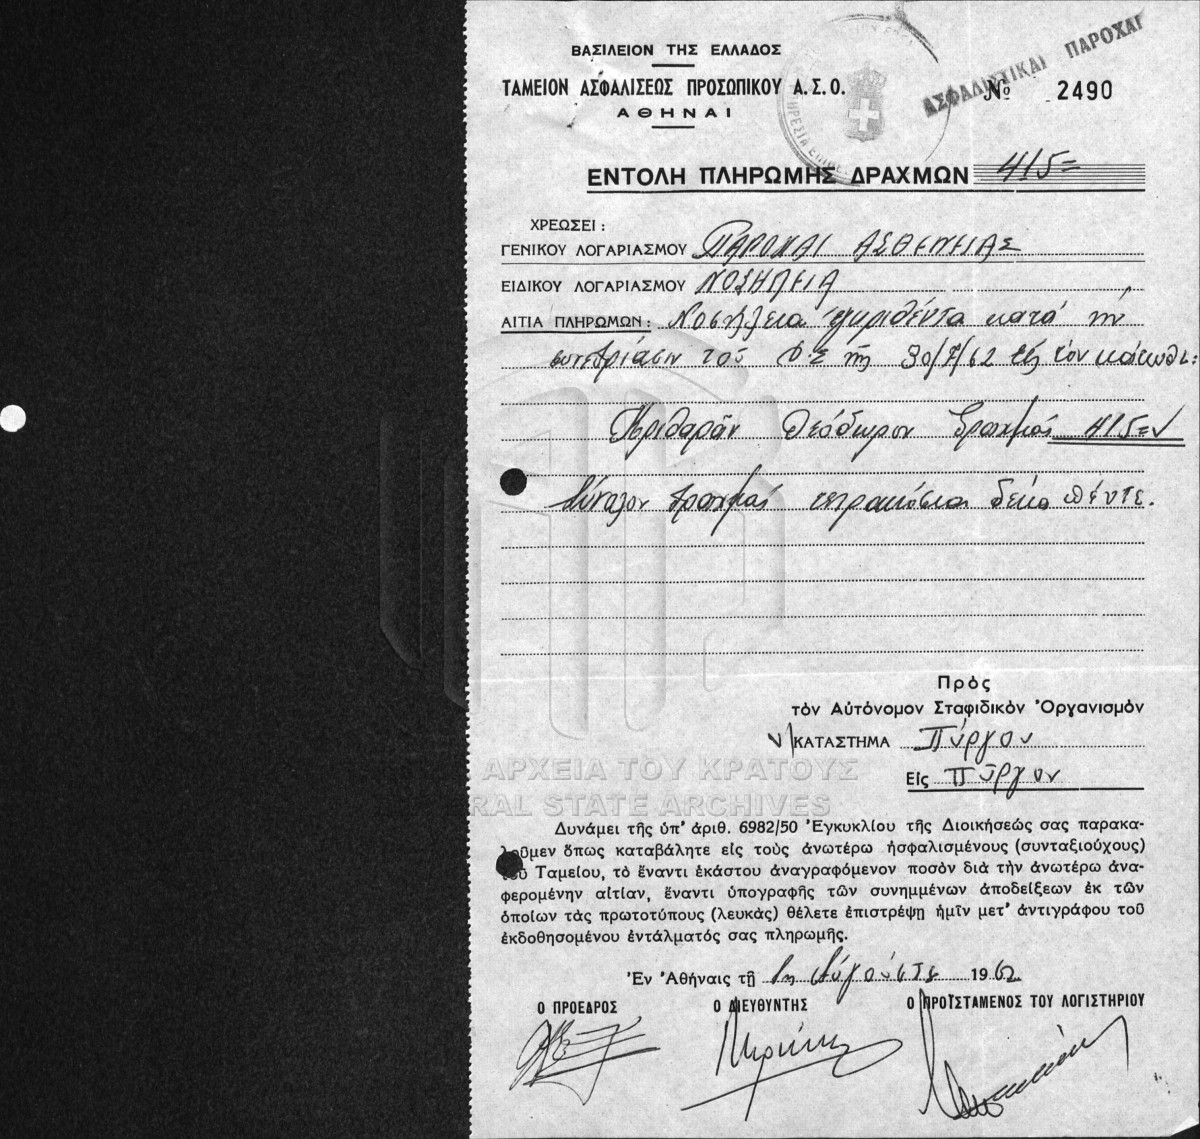 ΒΑΣΙΛΕΙΟΝ ΤΗΣ ΕΛΛΑΔΟΣ
ΤΑΜΕΙΟΝ ΑΣΦΑΛΙΣΕΩΣ ΠΡΟΣΩΠΙΚΟΥ Α.Σ.Ο.
ΑΘΗΝΑΙ
ΑΣΦΑΛΙΣΤΙΚΑΙ ΠΑΡΟΧΑΙ
№ 2490
ΕΝΤΟΛΗ ΠΛΗΡΩΜΗΣ ΔΡΑΧΜΩΝ 415=
ΧΡΕΩΣΕΙ:
ΓΕΝΙΚΟΥ ΛΟΓΑΡΙΑΣΜΟΥ ΠΑΡΟΧΑΙ ΑΣΘΕΝΕΙΑΣ
ΕΙΔΙΚΟΥ ΛΟΓΑΡΙΑΣΜΟΥ ΝΟΣΗΛΕΙΑ
ΑΙΤΙΑ ΠΛΗΡΩΜΩΝ: Νοσήλεια ἐγκριθέντα κατά τήν
συνεδρίασιν τοῦ Δ.Σ τῆς 30/7/62 εἰς τόν κάτωθι:
Θεόδωρον δραχμάς 415=
Σύνολον δραχμάς τετρακόσιαι δέκα πέντε.
Πρὸς
τὸν Αὐτόνομον Σταφιδικὸν Ὀργανισμὸν
ΚΑΤΑΣΤΗΜΑ Πύργου
Εἰς Πύργον
ΑΡΧΕΙΑ ΤΟΥ ΚΡΑΤΟΥΣ
GENERAL STATE ARCHIVES
Δυνάμει τῆς ὑπ' ἀριθ. 6982/50 Ἐγκυκλίου τῆς Διοικήσεώς σας παρακα-
λοῦμεν ὅπως καταβάλητε εἰς τοὺς ἀνωτέρω ἠσφαλισμένους (συνταξιούχους)
τοῦ Ταμείου, τὸ ἔναντι ἑκάστου ἀναγραφόμενον ποσὸν διὰ τὴν ἀνωτέρω ἀνα-
φερομένην αἰτίαν, ἔναντι ὑπογραφῆς τῶν συνημμένων ἀποδείξεων ἐκ τῶν
ὁποίων τὰς πρωτοτύπους (λευκὰς) θέλετε ἐπιστρέψῃ ἡμῖν μετ' ἀντιγράφου τοῦ
ἐκδοθησομένου ἐντάλματός σας πληρωμῆς.
Ἐν Ἀθήναις τῇ 1η Αὐγούστου 1962
Ο ΠΡΟΕΔΡΟΣ Ο ΔΙΕΥΘΥΝΤΗΣ Ο ΠΡΟΪΣΤΑΜΕΝΟΣ ΤΟΥ ΛΟΓΙΣΤΗΡΙΟΥ